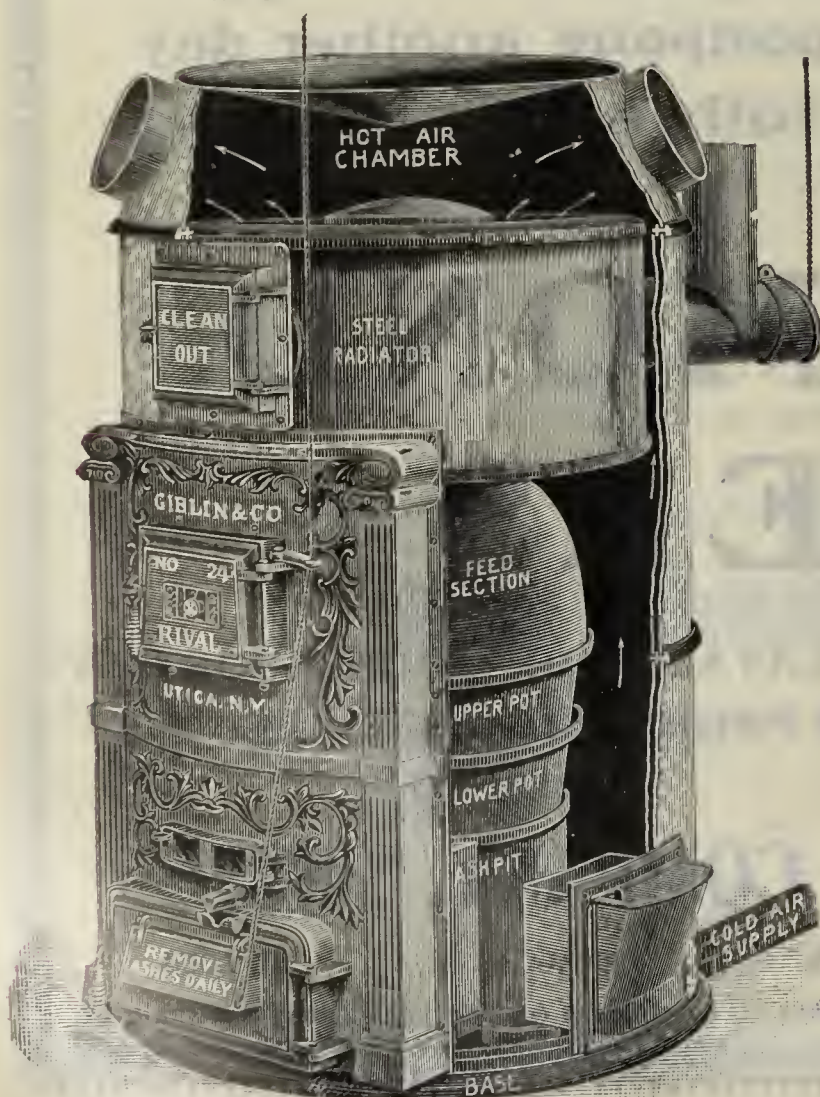 HOT AIR
CHAMBER
CLEAN
OUT
STEEL
RADIATOR
GIBLIN & CO
NO 24
RIVAL
UTICA, N.Y.
FEED
SECTION
UPPER POT
LOWER POT
ASH PIT
REMOVE
ASHES DAILY
COLD AIR
SUPPLY
BASE